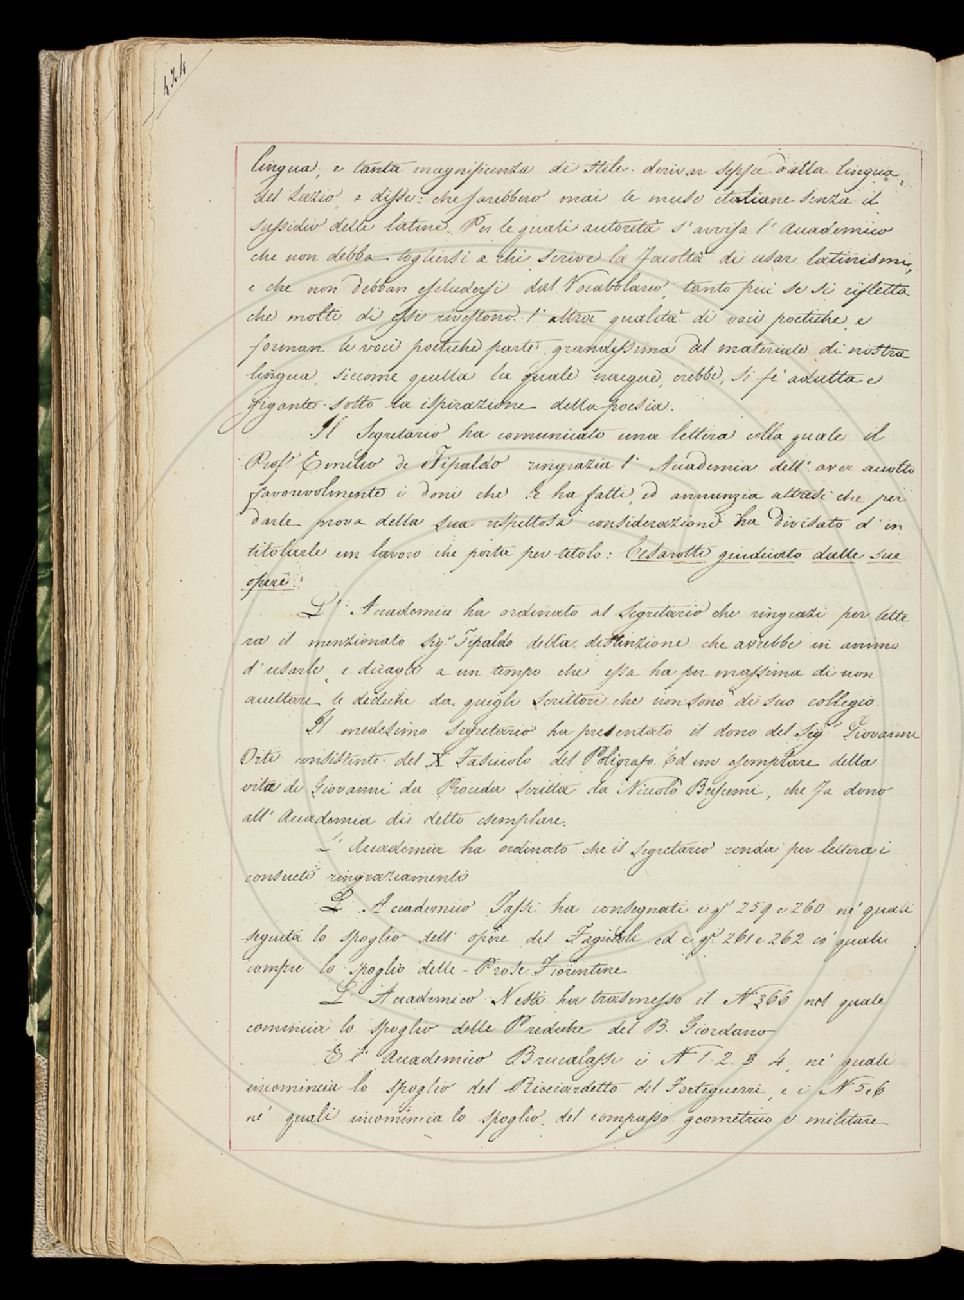 424
lingua, e tanta magnificenza di stile derivar seppe dalla lingua
del Lazio, e disse: che sarebbero mai le muse italiane senza il
sussidio delle latine. Per le quali autorità s'avvisa l'Accademico
che non debba togliersi a chi scrive la facoltà di usar latinismi,
e che non debban escludersi dal Vocabbolario, tanto più se si rifletta
che molti di essi rivestono l'altra qualità di voci poetiche, e
forman le voci poetiche parte grandissima del materiale di nostra
lingua, siccome quella la quale nacque, crebbe, si fè adulta e
gigante sotto la ispirazione della poesia.
Il Segretario ha comunicato una lettera colla quale il
Prof. Emilio de Tipaldo ringrazia l'Accademia dell'aver accolto
favorevolmente i doni che le ha fatti, ed annunzia altresì che per
darle prova della sua rispettosa considerazione ha divisato d'in
titolarle un lavoro che porta per titolo: Cesarotti giudicato dalle sue
opere.
L'Accademia ha ordinato al Segretario che ringrazi per lette
ra il menzionato Sig. Tipaldo della distinzione che avrebbe in animo
d'usarle, e dicagli a un tempo che essa ha per massima di non
accettare le dediche da quegli scrittori che non sono di suo collegio.
Il medesimo Segretario ha presentato il dono del Sig. Giovanni
Orti consistente del X Fascicolo del Poligrafo Ed un esemplare della
vita di Giovanni da Procida scritta da Niccolò Buscemi, che fa dono
all'Accademia di detto esemplare.
L'Accademia ha ordinato che il Segretario renda per lettera i
consueti ringraziamenti
L'Accademico Tassi ha consegnati i qi 259 e 260 ne' quali
seguita lo spoglio dell'opere del Fagiuoli ed i qi 261 e 262 co' quali
compie lo spoglio delle Prose Fiorentine
L'Accademico Nesti ha trasmesso il N 366 nel quale
comincia lo spoglio delle Prediche del B. Giordano
E l'Accademico Brucalassi i N 1. 2. 3 4, ne' quali
incomincia lo spoglio del Ricciardetto del Forteguerri, e i N 5 e 6
ne' quali incomincia lo spoglio del compasso geometrico e militare